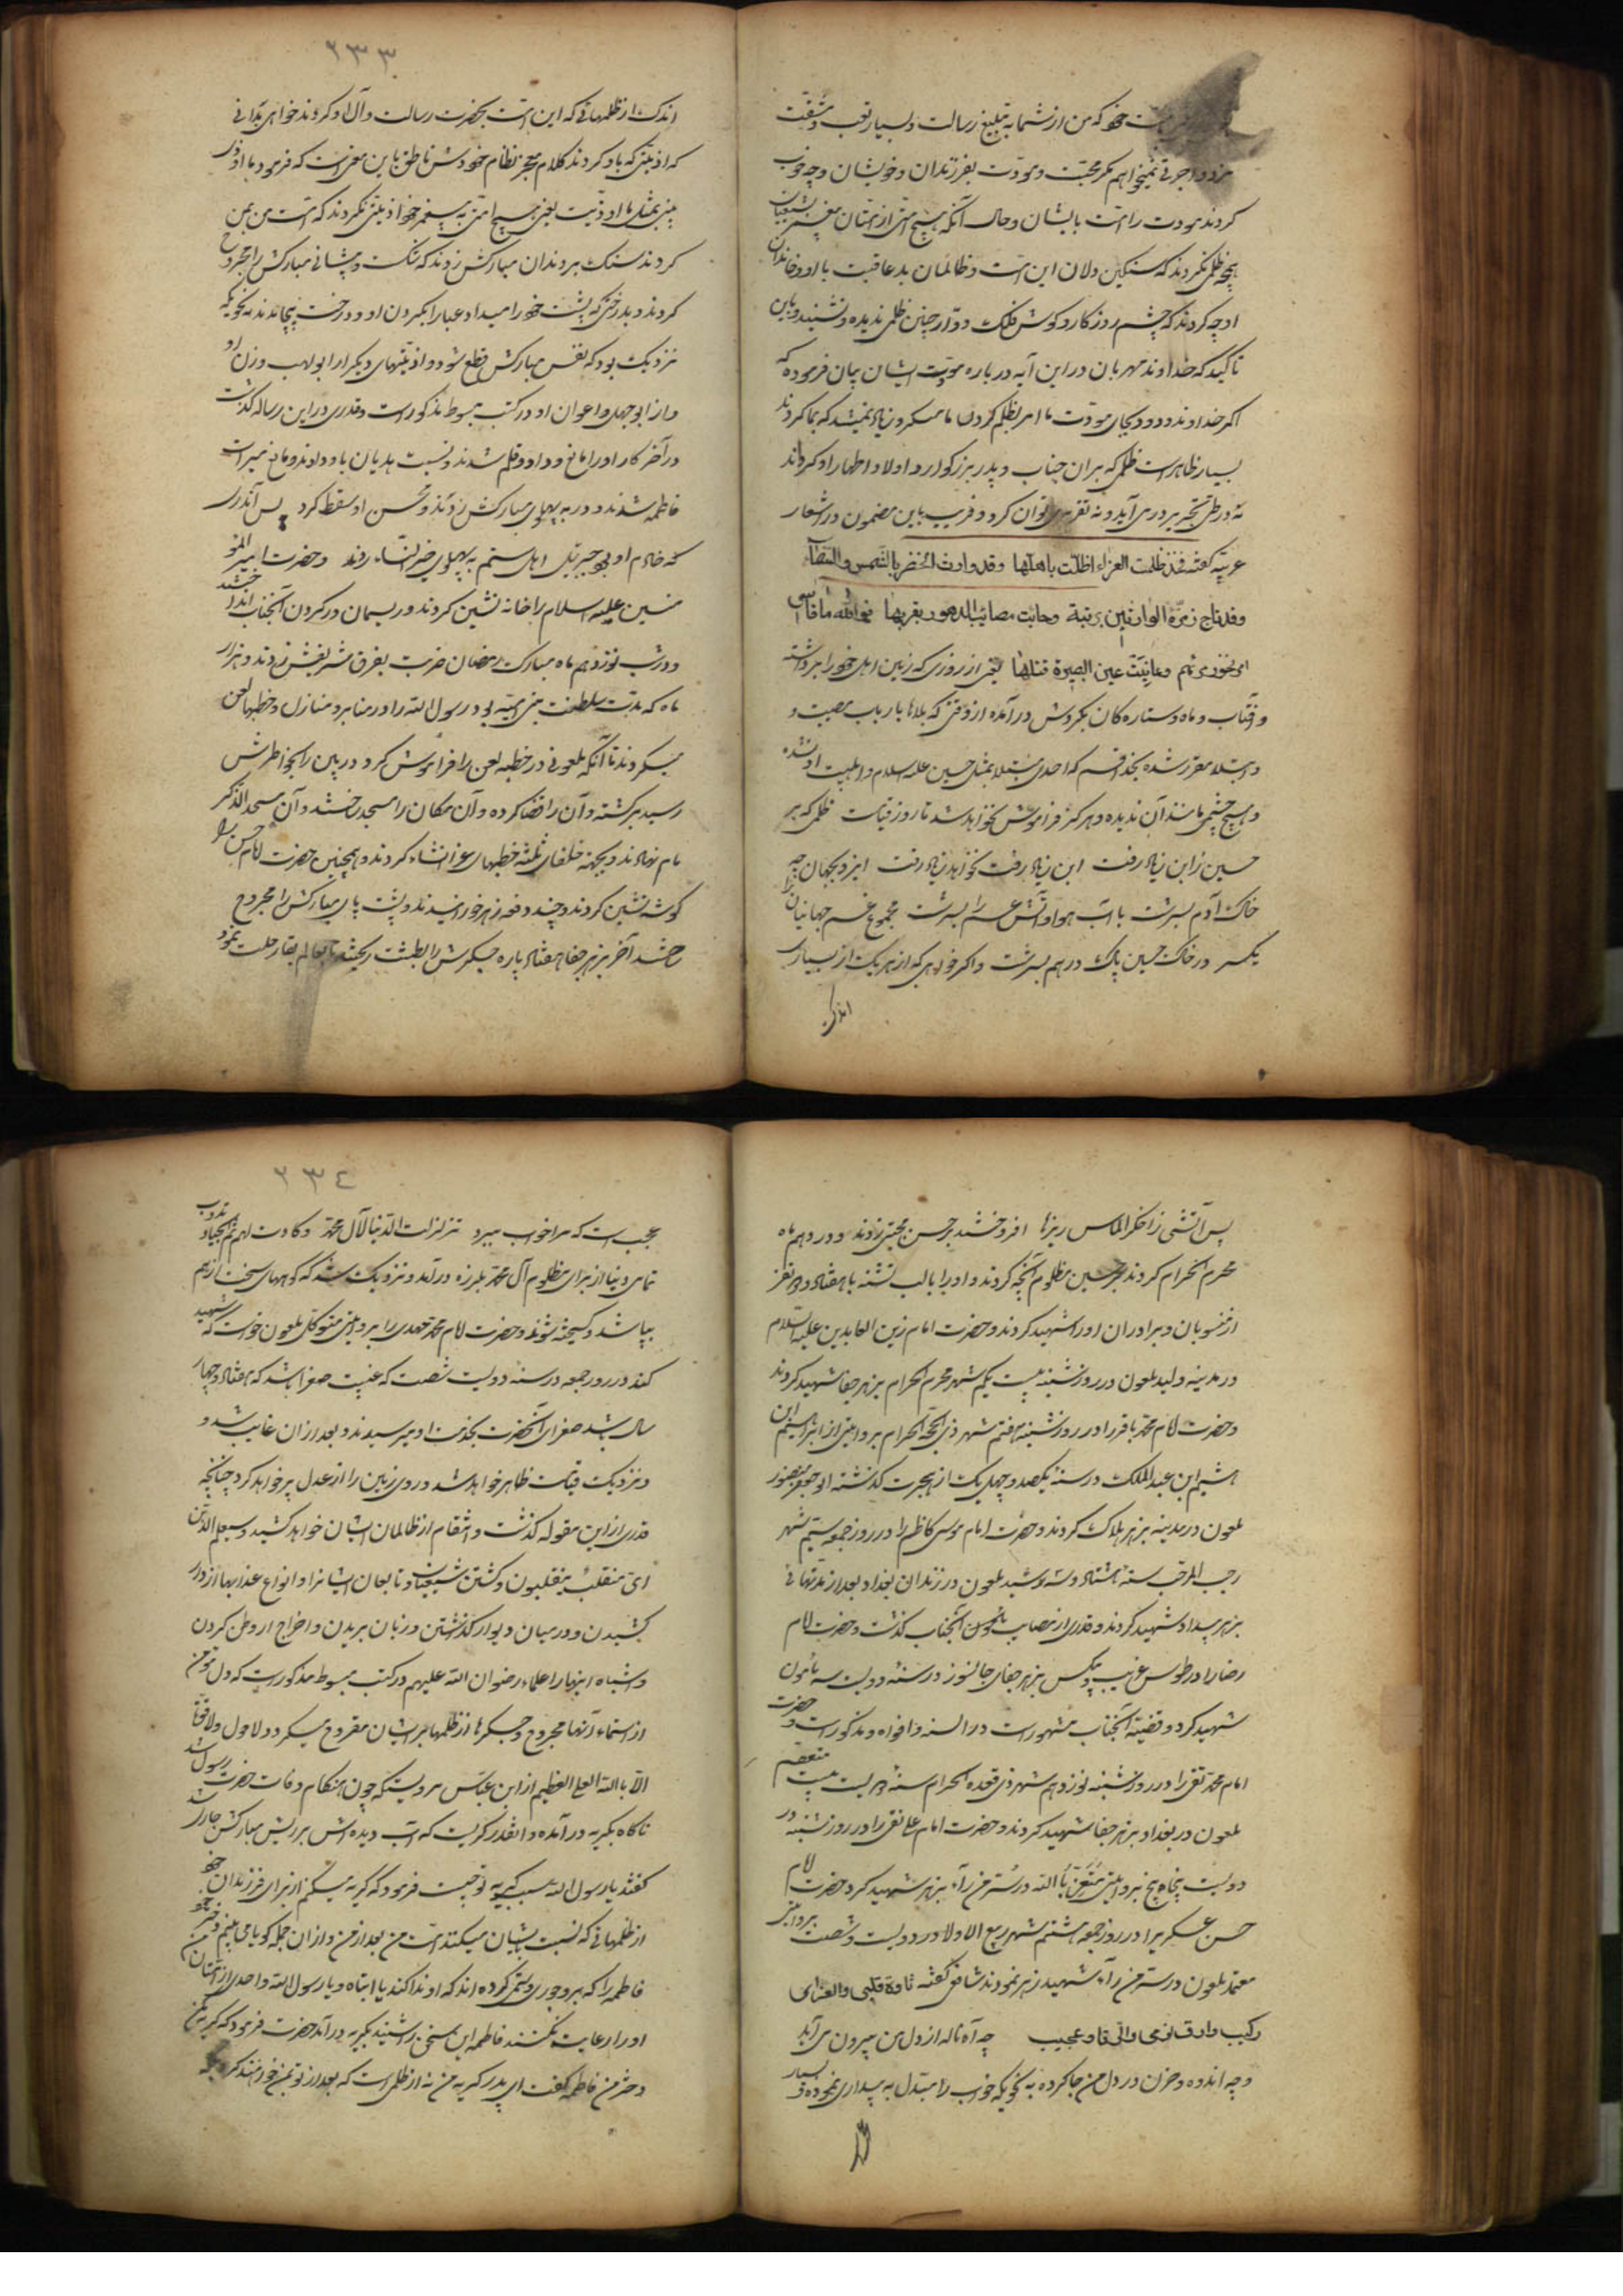 که من از شما به تبلیغ رسالت و بسیار تعب و مشقت
مزد و اجرتی نمیخواهم مکر محبت و مودت بفرزندان و خویشان و چه خوب
کردند مودت را امت بایشان و حال آنکه هیچ امتی از امتان پیغمبر
ظلمی نکردند که سنکین دلان این امت و ظالمان بد عاقبت با او و خاندان
او چه کردند که چشم روزکار و کوش فلک دوار چنین ظلمی ندیده و نشنید و باین
تاکید که خداوند مهربان در این آیه در باره مودت ایشان بیان فرموده که
اکر خداوند ودود بجای مودت ما امر بظلم کردن ما میکرد زیاد نمیشد که بما کردند
بسیار ظاهر است ظلمی که بر ان جناب و پدر بزرکوار و اولاد اطهار او کرده‌اند
نه در طی تحریر در می آید و نه تقریر می توان کرد و قریب باین مضمون در اشعار
عربیه کفته فقد ظلمت العزاء اظلت باهلها وقد وارت الخضر بالشمس و
وقد تاج زمرة الوارثین برتبة وحابت مصائب الدهور بقربها فوالله ما قاسی
وعاینت عین البصیرة مثلها یعنی از روزی که زمین اهل خود را برداشته
و افتاب و ماه و ستاره کان بکردش درآمده از وقتی که بلاها بارباب مصیبت و
و ابتلا مقرر شده بخدا قسم که احدی مبتلا بمثل حسین علیه السلام و اهلبیت او نشده
و هیچ چشمی مانند آن ندیده و هرکز فراموش نخواهد شد تا روز قیامت ظلمی که بر
حسین زابن زیاد رفت این زیاد رفت نخواهد زیاد رفت ایزد بجهان چه
خاک آدم بسرشت با آب هوا و آتش غم را بسرشت مجموع غم جهانیان را
یکسر در خاک حسین پاک در هم بسرشت و اکر خواهی که از هریک از بسیاری
اندکی
۲۳۳
اندک از ظلمهائی که این امت بحضرت رسالت و آل او کردند خواهی بدانی
که اذیتی که باو کردند کلام معجز نظام خودش ناطق باین معنی است که فرمود ما اوذی
نبی بمثل ما اوذیت یعنی هیچ امتی به پیغمبر خود اذیتی نکردند که امت من بمن
کردند سنک بر دندان مبارکش زدند که شکست و پیشانی مبارکش را مجروح
کردند و بدرختی که پشت خود را میداد عبا را بکردن او و درخت پیچاندند بنحویکه
نزدیک بود که نفس مبارکش قطع شود و اذیتهای دیکر از ابولهب و زن او
و از ابو جهل و اعوان او در کتب مبسوط مذکور است و قدری در این رساله کذشت
در آخر کار او را مانع دوات و قلم شدند و نسبت هذیان باو دادند و مانع میراث
فاطمه شدند و در به پهلوی مبارکش زدند و محسن او سقط کرد پس آندری
که خادم او بود جبرئیل اهل ستم به پهلوی خیر النساء زدند و حضرت امیر المؤ
منین علیه السلام را خانه نشین کردند و ریسمان در کردن آنجناب انداختند
و در شب نوزدهم ماه مبارک رمضان ضربت بفرق شریفش زدند و هزار
ماه که مدت سلطنت بنی امیه بود رسول الله را در منابر و منازل و خطبها لعن
میکردند تا آنکه ملعونی در خطبه لعن را فراموش کرد در بین راه بخاطرش
رسید برکشته و آن را قضا کرده و آن مکان را مسجد ساختند و آن مسجد الذکر
نام نهادند و بجهة خلفای ثلثه خطبهای غرا انشاء کردند و همچنین حضرت امام حسن را
کوشه نشین کردند و چند دفعه زهر خورانیدند و پشت پای مبارکش را مجروح
آخر بزهر جفا هفتاد پاره جیکرش را بطشت ریخته بعالم بقا رحلت نمود
پس آتشی ز اخکر الماس ریزها افروختند بر حسن مجتبی زدند و در دهم ماه
محرم الحرام کردند بر حسین مظلوم آنچه کردند و او را با لب تشنه با هفتاد و دو نفر
از منسوبان و برادران او را شهید کردند و حضرت امام زین العابدین علیه السلام
در مدینه ولید ملعون در روز شنبه بیست یکم شهر محرم الحرام بزهر جفا شهید کردند
و حضرت امام محمد باقر را در روز شنبه هفتم شهر ذی الحجة الحرام بروایتی از ابراهیم ابن
هشیم ابن عبد الملک در سنه یکصد و چهل یک از هجرت کذشته ابو جعفر منصور
ملعون در مدینه بزهر هلاک کردند و حضرت امام موسی کاظم را در روز جمعه ششم شهر
رجب المرجب سنه هشتاد و سه رشید ملعون در زندان بغداد بعد از مدتهائی
بزهر بیداد شهید کردند و قدری از مصایب آنجناب کذشت و حضرت امام
رضا را در طوس غریب و بیکس بزهر جفای جانسوز در سنه دویست سه مامون
شهید کرد و قضیه آنجناب مشهور است در السنه و افواه و مذکور است و حضرت
امام محمد تقی را در روز شنبه نوزدهم شهر ذی قعده الحرام سنه دویست بیست معتصم
ملعون در بغداد بزهر جفا شهید کردند و حضرت امام علی نقی را در روز شنبه در
دویست پنجاه پنج بروایتی بالله در سر من رآء بزهر شهید کرد حضرت امام
حسن عسکری را در روز جمعه هشتم شهر ربیع الاولا در دویست و شصت بروایتی
معتمد ملعون در سر من رآء شهید زهر نمودند شافعی کفته تاوه قلبی والفؤاد
کئیب وارق نومی والرقاد عجیب چه آه ناله از دل من بیرون می آید
و چه اندوه و حزن در دل من جا کرده به نحویکه خواب را مبتدل به بیداری نموده و بسیار
۲۳٤
عجب است که مرا خواب میبرد تزلزلت الدنیا لآل محمد و کادت لهم صم الجبال تذوب
تمامی دنیا از برای مظلومی آل محمد بلرزه در آمد و نزدیک شد که کوههای سخت از هم
بپاشد و کسیخته شوند و حضرت امام محمد مهدی را بروایتی متوکل ملعون خواست که شهید
کند در روز جمعه در سنه دویست شصت که غیبت صغرا باشد که هفتاد و چهار
سال باشد صغرای آنحضرت بخدمت او میرسیدند و بعد از ان غایب شد و
و نزدیک قیامت ظاهر خواهد شد و روی زمین را از عدل پر خواهد کرد چنانچه
قدری از این مقوله کذشت و انتقام از ظالمان ایشان خواهد کشید و سیعلم الذین
ای منقلب ینقلبون و کشتن شیعیان و تابعان ایشانرا و انواع عذابها از دار
کشیدن و در میان دیوار کذاشتن و زبان بریدن و اخراج از وطن کردن
و اشباه اینها را علماء رضوان الله علیهم در کتب مبسوط مذکور است که دل مؤمن
از استماع آنها مجروح و جیکرها از ظلمها بر ایشان مقروح میکردد و لا حول و لا قوة
الا بالله العلی العظیم از ابن عباس مرویست که چون هنکام وفات حضرت رسول شد
ناکاه بکریه درآمده و انقدر کریست که آب دیده اش بر ریش مبارکش جاری شد
کفتند یا رسول الله سبب کریه تو چیست فرمود که کریه میکنم از برای فرزندان خود
از ظلمهائی که نسبت بایشان میکند امت من بعد از من و از ان جمله کویا می بینم دختر خود
فاطمه را که بر او جور و ستمی کرده اند که او ندا کند یا ابتاه و یا رسول الله و احدی از امتان من
او را رعایت نکنند فاطمه این سخن را شنید بکریه در آمد حضرت فرمود که کریه مکن
دختر من فاطمه کفت ای پدر کریه من نه از ظلمی است که بعد از تو بمن خواهند کرد بلکه